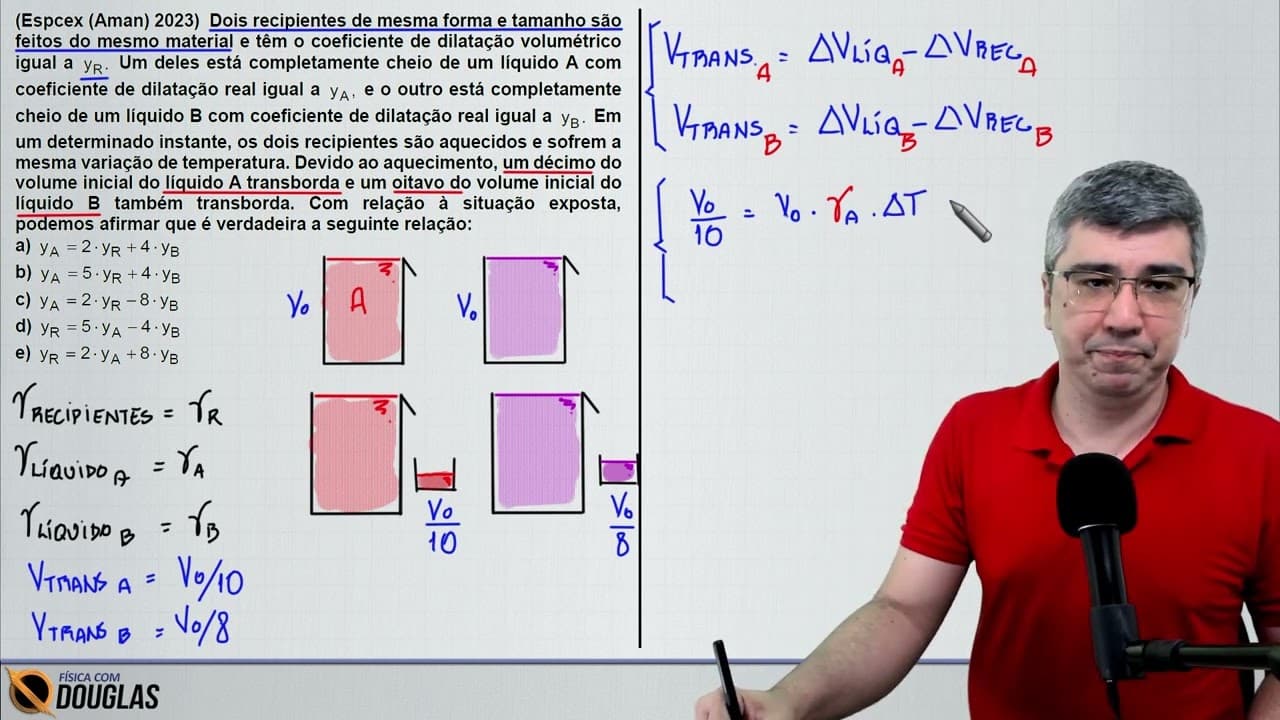 (Espcex (Aman) 2023) Dois recipientes de mesma forma e tamanho são
feitos do mesmo material e têm o coeficiente de dilatação volumétrico
igual a yR. Um deles está completamente cheio de um líquido A com
coeficiente de dilatação real igual a yA, e o outro está completamente
cheio de um líquido B com coeficiente de dilatação real igual a yB. Em
um determinado instante, os dois recipientes são aquecidos e sofrem a
mesma variação de temperatura. Devido ao aquecimento, um décimo do
volume inicial do líquido A transborda e um oitavo do volume inicial do
líquido B também transborda. Com relação à situação exposta,
podemos afirmar que é verdadeira a seguinte relação:
a) yA = 2·yR + 4·yB
b) yA = 5·yR + 4·yB
c) yA = 2·yR − 8·yB
d) yR = 5·yA − 4·yB
e) yR = 2·yA + 8·yB
V0 A V0
γRECIPIENTES = γR
γLÍQUIDO A = γA
γLÍQUIDO B = γB
V0/10
V0/8
VTRANS A = V0/10
VTRANS B = V0/8
VTRANS. A = ΔVLÍQ A − ΔVREC A
VTRANS B = ΔVLÍQ B − ΔVREC B
V0/10 = V0 · γA · ΔT
FÍSICA COM
DOUGLAS